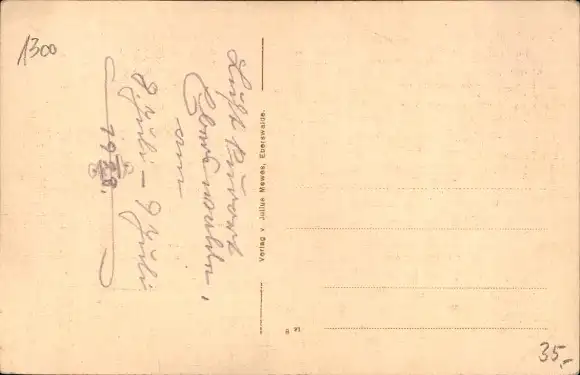 1300
Luft Kurort
Eberswalde,
am
8. Juli – 9 Juli
1928.
Verlag v. Julius Mewes, Eberswalde.
35,-